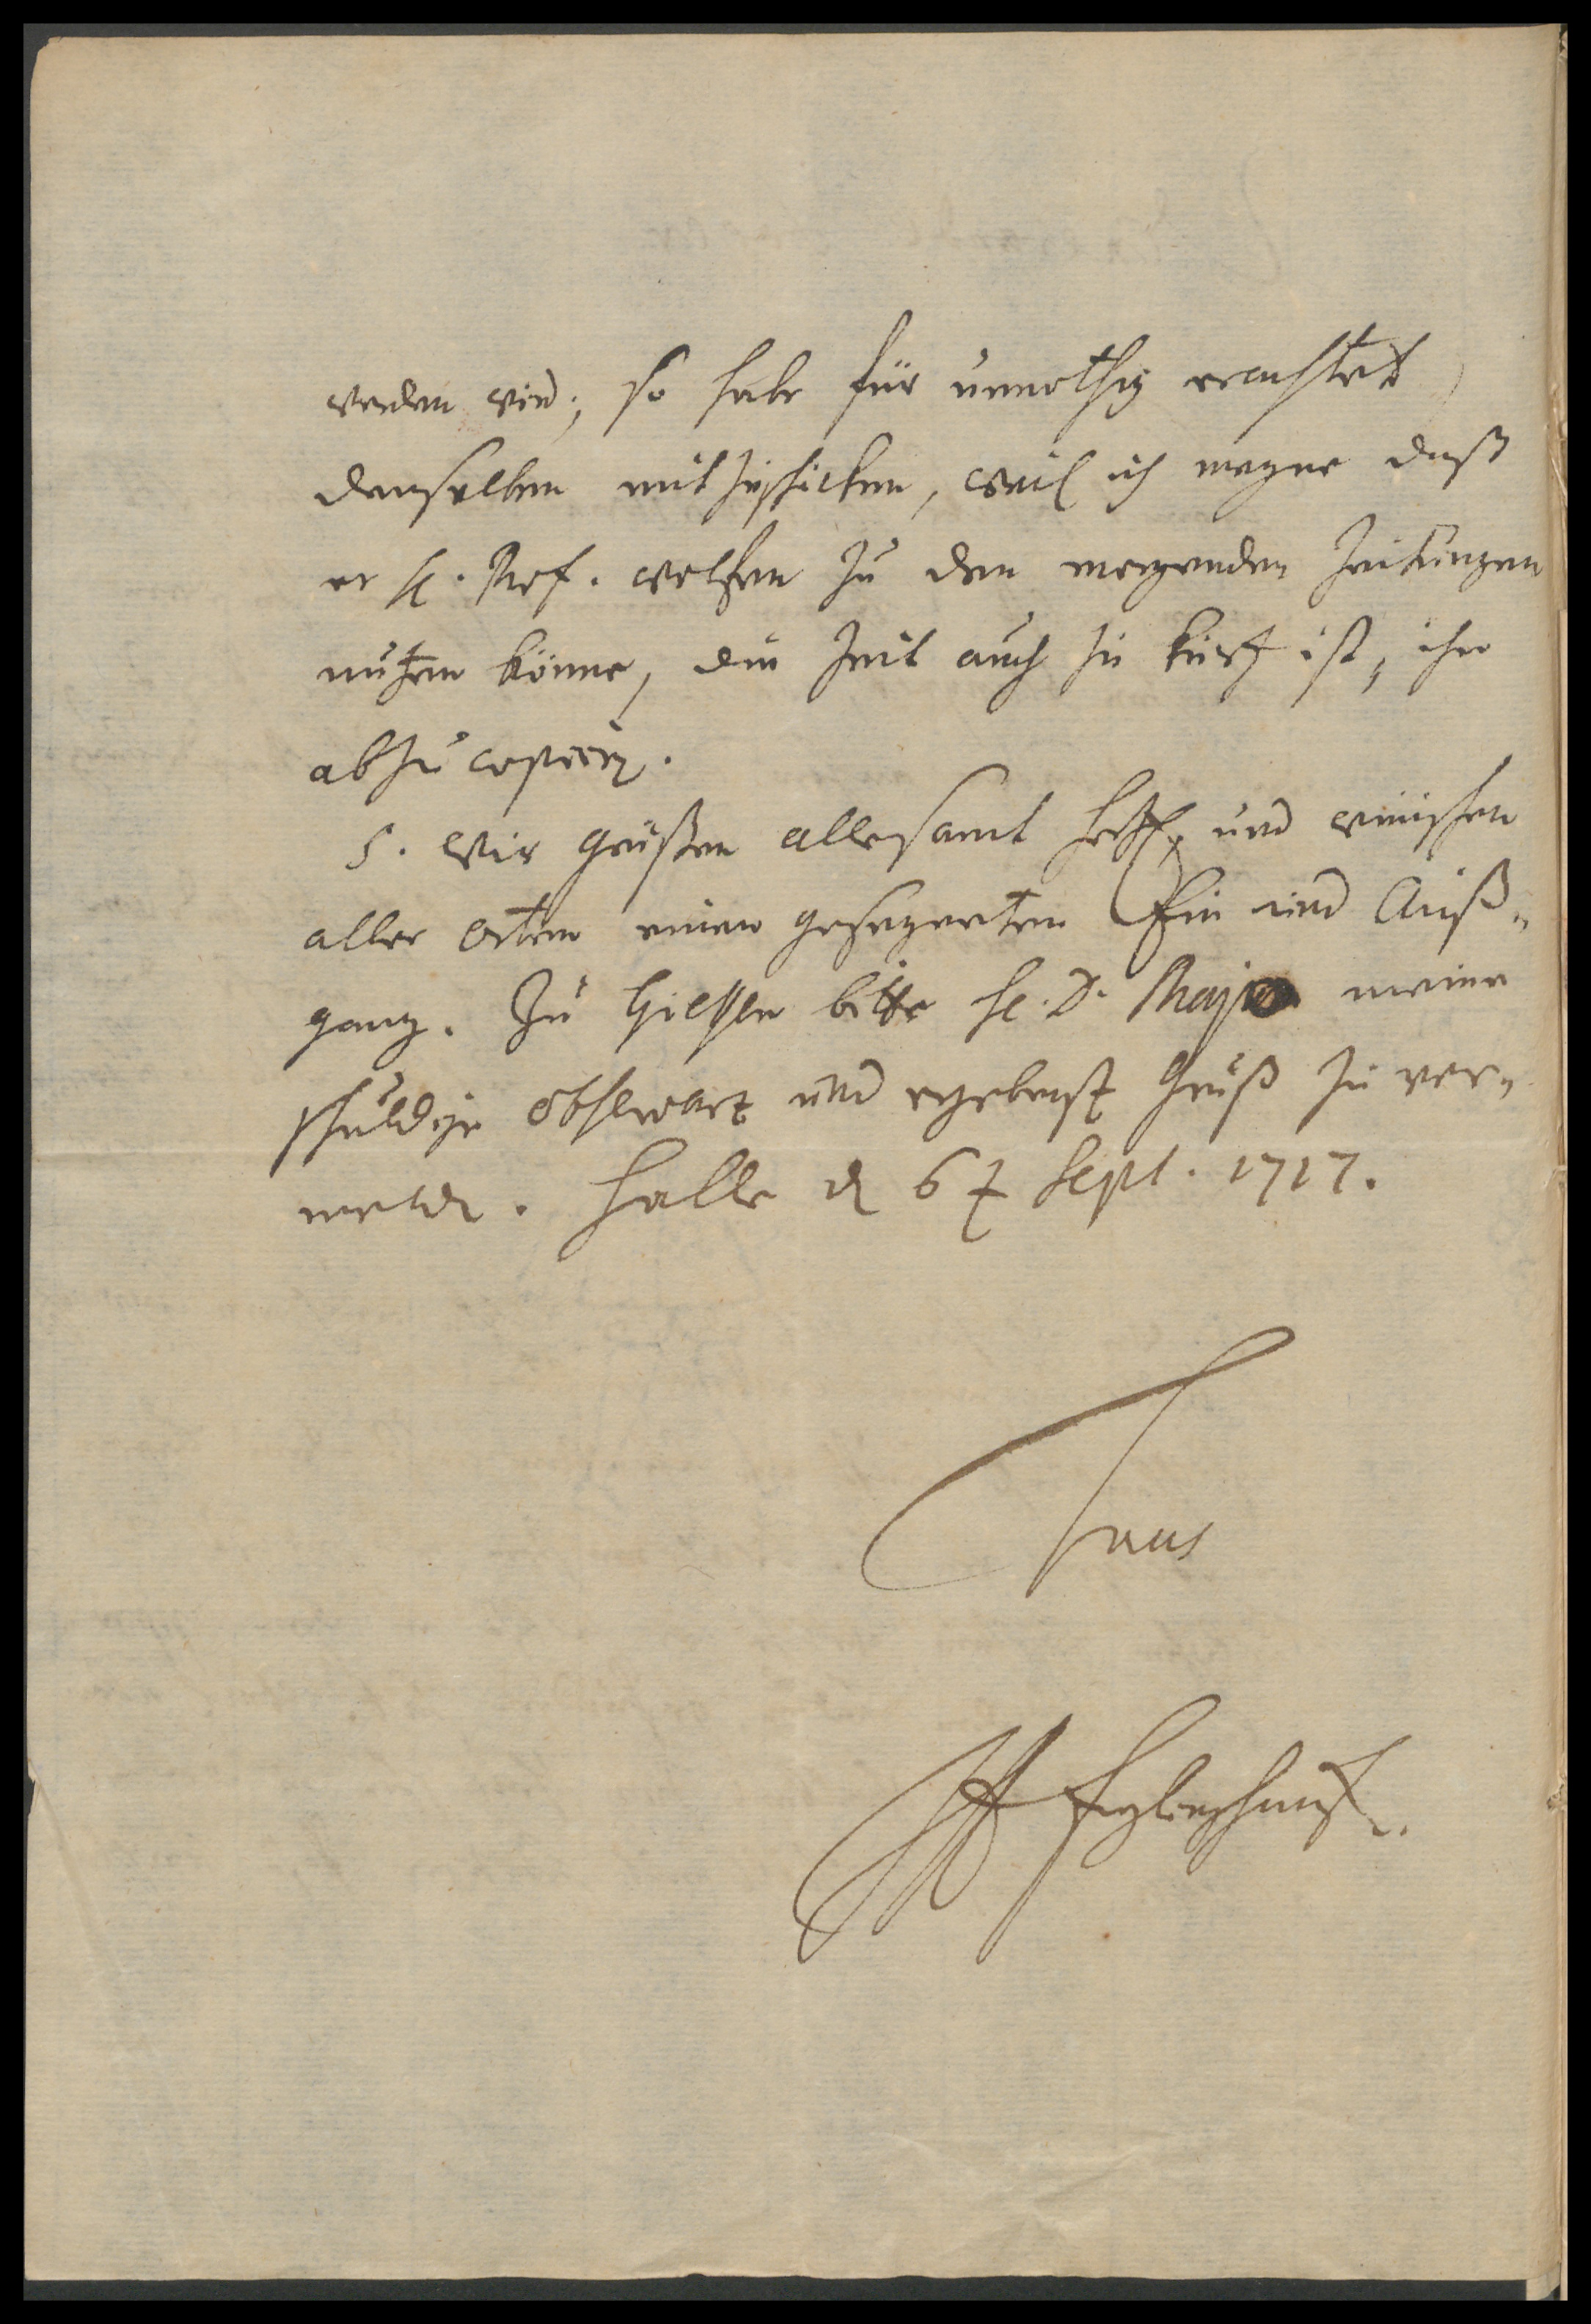 werden wird; so habe für unnöthig erachtet
denselben mit zuschicken, weil ich meyne daß
er H. Prof. welchen zu den Zeitungen
nutzen könne, die Zeit auch zu kurtz ist, ihn
abzucopiren.
5. Wir grüßen allesamt hertzl. und wünschen
aller orten einen gesegneten Ein und Auß-
gang. Zu Giessen bitte H. D. Majo meine
schuldige observanz und ergebenst Gruß zu ver-
melden. Halle d 6t Sept. 1717.
Tuus